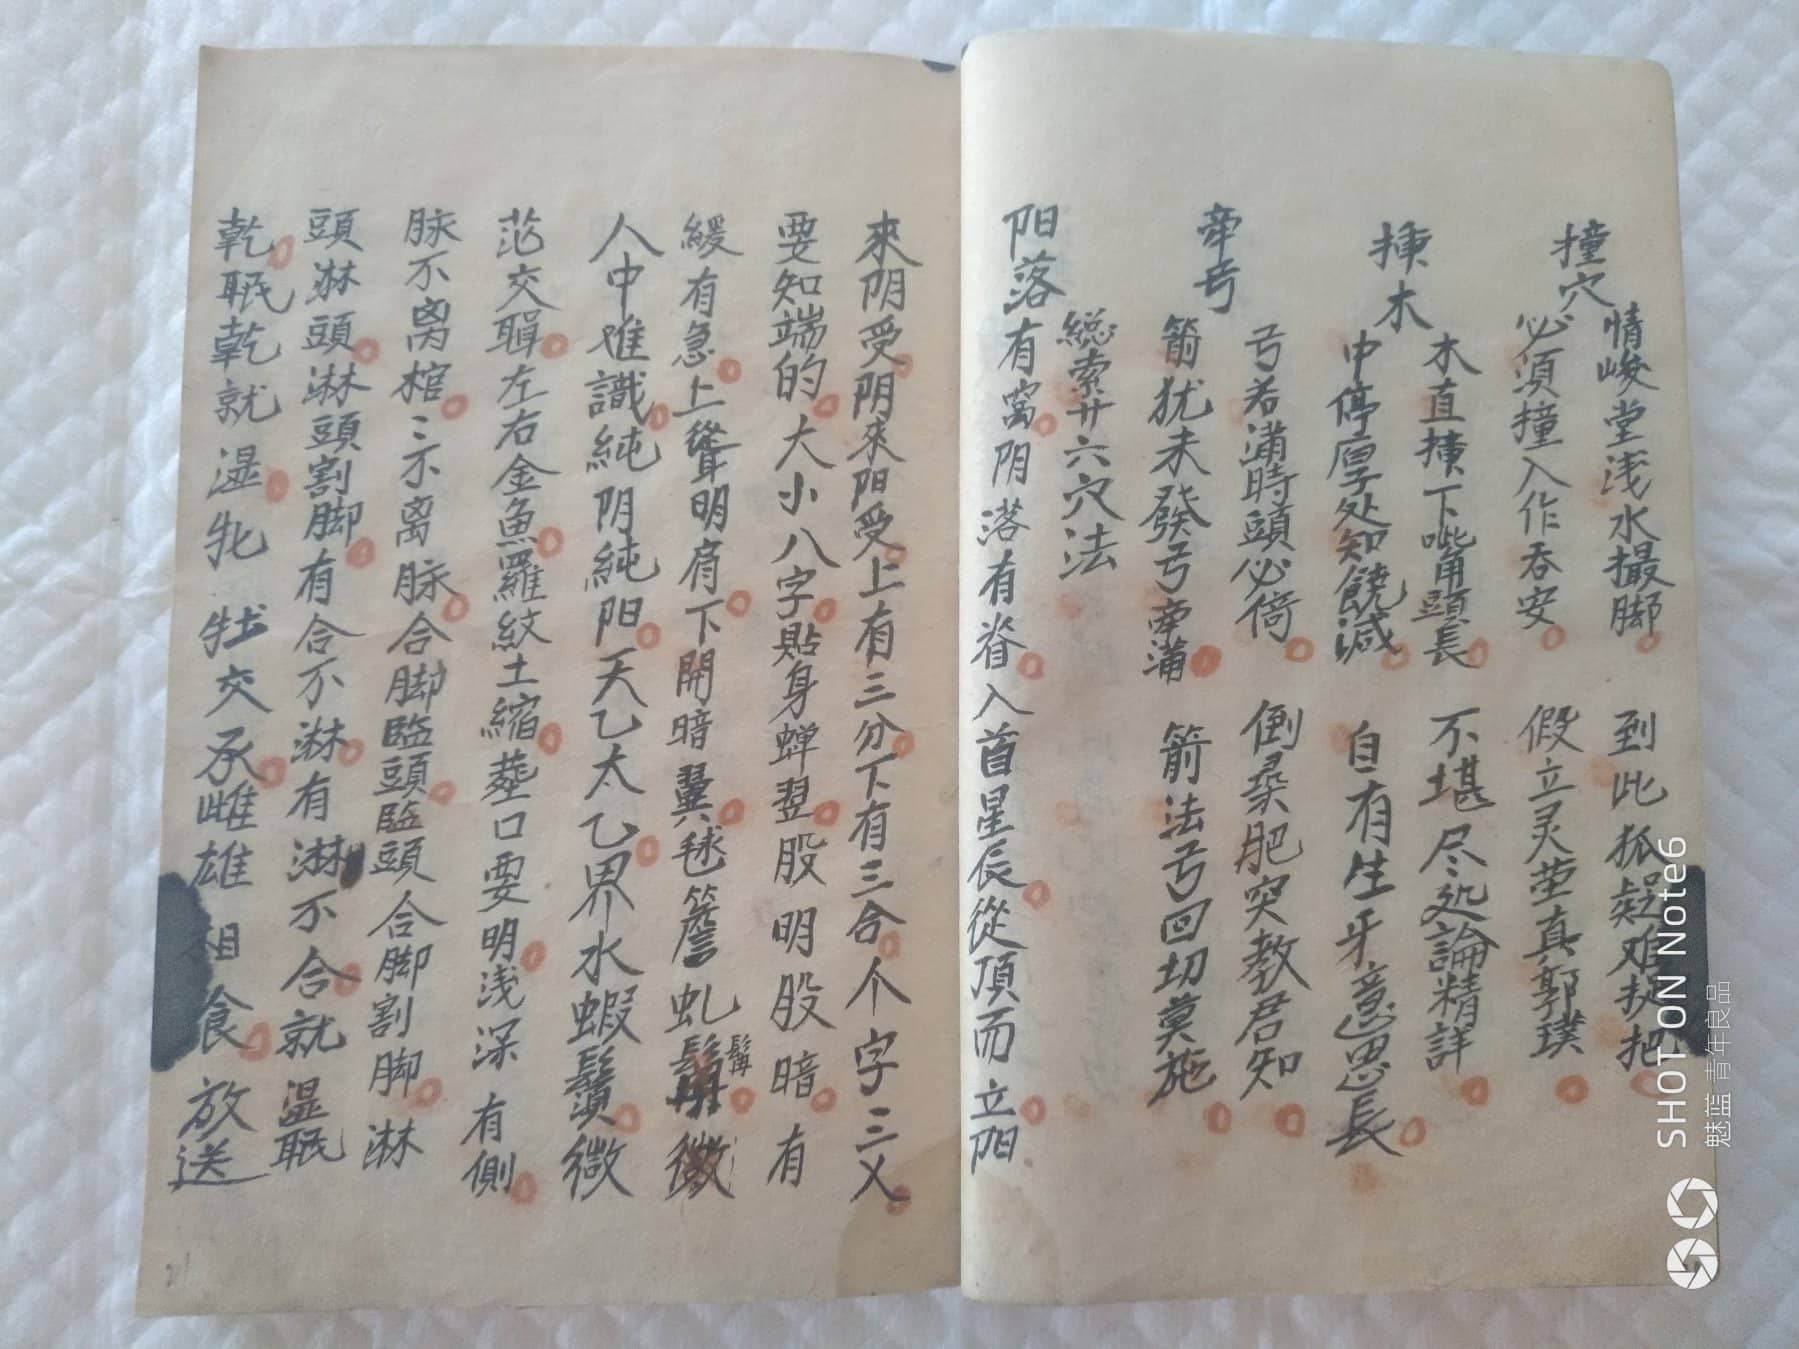 撞穴
情峻堂浅水撮脚 到此狐疑难捉把
必須撞入作吞安 假立灵茔真郭璞
木
木直 下嘴頭長 不堪尽处論精詳
中停厚处知饒减 自有生牙意思長
牵弓
弓若满時頭必倚 倒桑肥突教君知
箭犹未發弓牵满 箭法弓回切莫施
總索廿六穴法
阳落有窩阴落有脊入首星辰從頂而立阳
來阴受阴來阳受上有三分下有三合个字三乂
要知端的大小八字貼身蝉翌股明股暗有
緩有急上聳明肩下開暗翼毬簷虬髯微
人中难識純阴純阳天乙太乙界水蝦鬚微
茫交 左右金魚羅紋土縮塟口要明浅深有側
脉不离棺棺不离脉合脚臨頭臨頭合脚割脚淋
頭淋頭淋頭割脚有合不淋有淋不合就濕眠
乾眠乾就濕牝牡交承雌雄相食放送
SHOT ON Note6
魅蓝青年良品